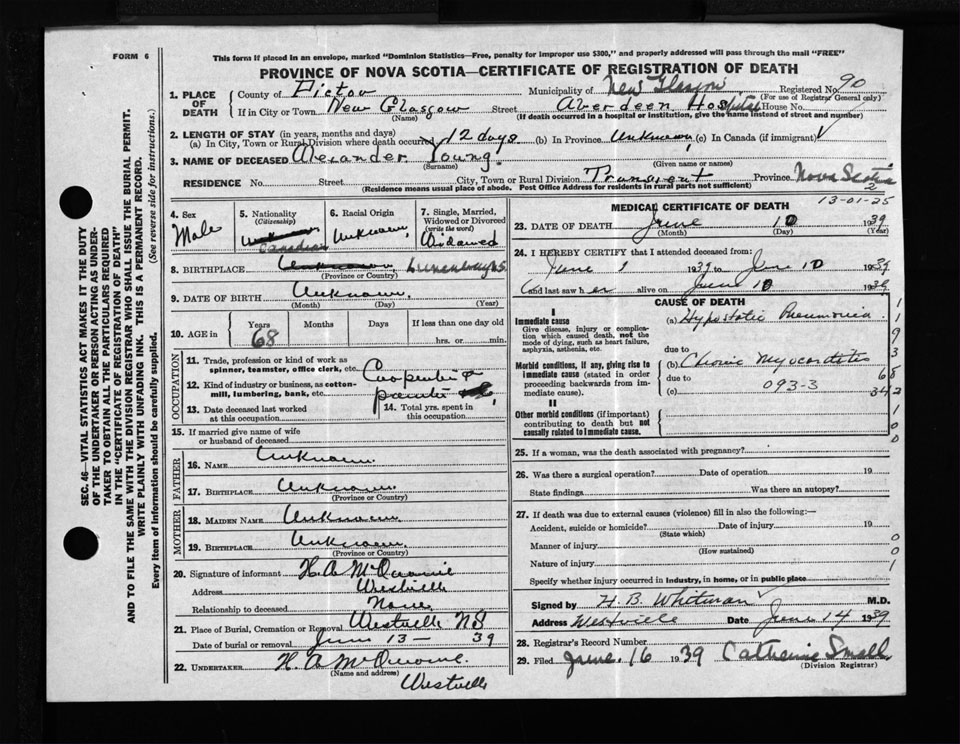 FORM 6
This form if placed in an envelope, marked "Dominion Statistics—Free, penalty for improper use $300," and properly addressed will pass through the mail "FREE"
PROVINCE OF NOVA SCOTIA—CERTIFICATE OF REGISTRATION OF DEATH
SEC. 46—VITAL STATISTICS ACT MAKES IT THE DUTY
OF THE UNDERTAKER OR PERSON ACTING AS UNDER-
TAKER TO OBTAIN ALL THE PARTICULARS REQUIRED
IN THE "CERTIFICATE OF REGISTRATION OF DEATH"
AND TO FILE THE SAME WITH THE DIVISION REGISTRAR WHO SHALL ISSUE THE BURIAL PERMIT.
WRITE PLAINLY WITH UNFADING INK. THIS IS A PERMANENT RECORD.
Every item of Information should be carefully supplied. (See reverse side for instructions.)
1. PLACE OF DEATH
County of Pictou Municipality of New Glasgow Registered No. 90
(For use of Registrar General only)
If in City or Town New Glasgow Street Aberdeen Hospital House No.
(Name) (If death occurred in a hospital or institution, give the name instead of street and number)
2. LENGTH OF STAY (in years, months and days)
(a) In City, Town or Rural Division where death occurred 12 days (b) In Province Unknown (c) In Canada (if immigrant)
3. NAME OF DECEASED Alexander Young
(Surname) (Given name or names)
RESIDENCE No. Street City, Town or Rural Division Transient Province Nova Scotia
(Residence means usual place of abode. Post Office Address for residents in rural parts not sufficient)
2
4. Sex
Male
5. Nationality
(Citizenship)
Unknown
Canadian
6. Racial Origin
Unknown
7. Single, Married, Widowed or Divorced
(write the word)
Widowed
8. BIRTHPLACE Unknown, Lunenburg NS
(Province or Country)
9. DATE OF BIRTH Unknown
(Month) (Day) (Year)
10. AGE in
Years Months Days If less than one day old
68 hrs. or min.
OCCUPATION
11. Trade, profession or kind of work as
spinner, teamster, office clerk, etc. Carpenter &
12. Kind of industry or business, as cotton-
mill, lumbering, bank, etc. painter
13. Date deceased last worked
at this occupation
14. Total yrs. spent in
this occupation
15. If married give name of wife
or husband of deceased
FATHER
16. NAME Unknown
17. BIRTHPLACE Unknown
(Province or Country)
MOTHER
18. MAIDEN NAME Unknown
19. BIRTHPLACE Unknown
(Province or Country)
20. Signature of informant H A McQuarrie
Address Westville
Relationship to deceased None
21. Place of Burial, Cremation or Removal Westville NS
Date of burial or removal June 13 — 39
22. UNDERTAKER H A McQuarrie
(Name and address)
Westville
MEDICAL CERTIFICATE OF DEATH
13-01-25
23. DATE OF DEATH June 10 1939
(Month) (Day) (Year)
24. I HEREBY CERTIFY that I attended deceased from:
June 1 1939 to Jun 10 1939
and last saw h er alive on June 10 1939
CAUSE OF DEATH
I
Immediate cause
Give disease, injury or complica-
tion which caused death, not the
mode of dying, such as heart failure,
asphyxia, asthenia, etc.
(a) Hypostatic Pneumonia
due to
Morbid conditions, if any, giving rise to
immediate cause (stated in order
proceeding backwards from im-
mediate cause).
(b) Chronic Myocarditis
due to
(c) 093-3
II
Other morbid conditions (if important)
contributing to death but not
causally related to immediate cause.
1
1
9
3
68
342
1
0
0
25. If a woman, was the death associated with pregnancy?
26. Was there a surgical operation? Date of operation 19
State findings Was there an autopsy?
27. If death was due to external causes (violence) fill in also the following:—
Accident, suicide or homicide? Date of injury 19
(State which)
Manner of injury
(How sustained)
Nature of injury
Specify whether injury occurred in industry, in home, or in public place
0
0
1
Signed by H. B. Whitman M.D.
Address Westville Date June 14 1939
28. Registrar's Record Number
29. Filed June 16 1939 Catherine Small
(Division Registrar)